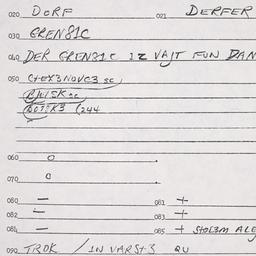 020 DORF 021 DERFER
030 GREN81C
040 DER GREN81C IZ VAJT FUN DAN
050 C+EX3NOVC3 sc
BJLSK sc
BOTSK3 (244
060 O
070 O
080 — 081 +
082 — 083 +
084 — 085 + STOL3M ALE
090 TROK / IN VARST3 QU